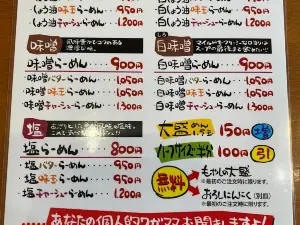 しょう油味玉らーめん 950円
しょう油チャーシューらーめん 1,200円
味噌
味噌らーめん 900円
味噌バターらーめん 1,050円
味噌味玉らーめん 1,050円
味噌チャーシューらーめん 1,300円
塩
塩らーめん 800円
塩バターらーめん 950円
塩味玉らーめん 950円
塩チャーシューらーめん 1,200円
しょう油味玉らーめん 950円
しょう油チャーシューらーめん 1,200円
白味噌
白味噌らーめん 900円
白味噌バターらーめん 1,050円
白味噌味玉らーめん 1,050円
白味噌チャーシューらーめん 1,300円
大盛 1.5玉 150円 増
ハーフサイズ 100円 引
無料
もやし大盛
※最初のご注文時に限ります。
おろしにんにく(別皿)
※最初のご注文時に限ります。
あなたの個人的ワガママお聞きします!